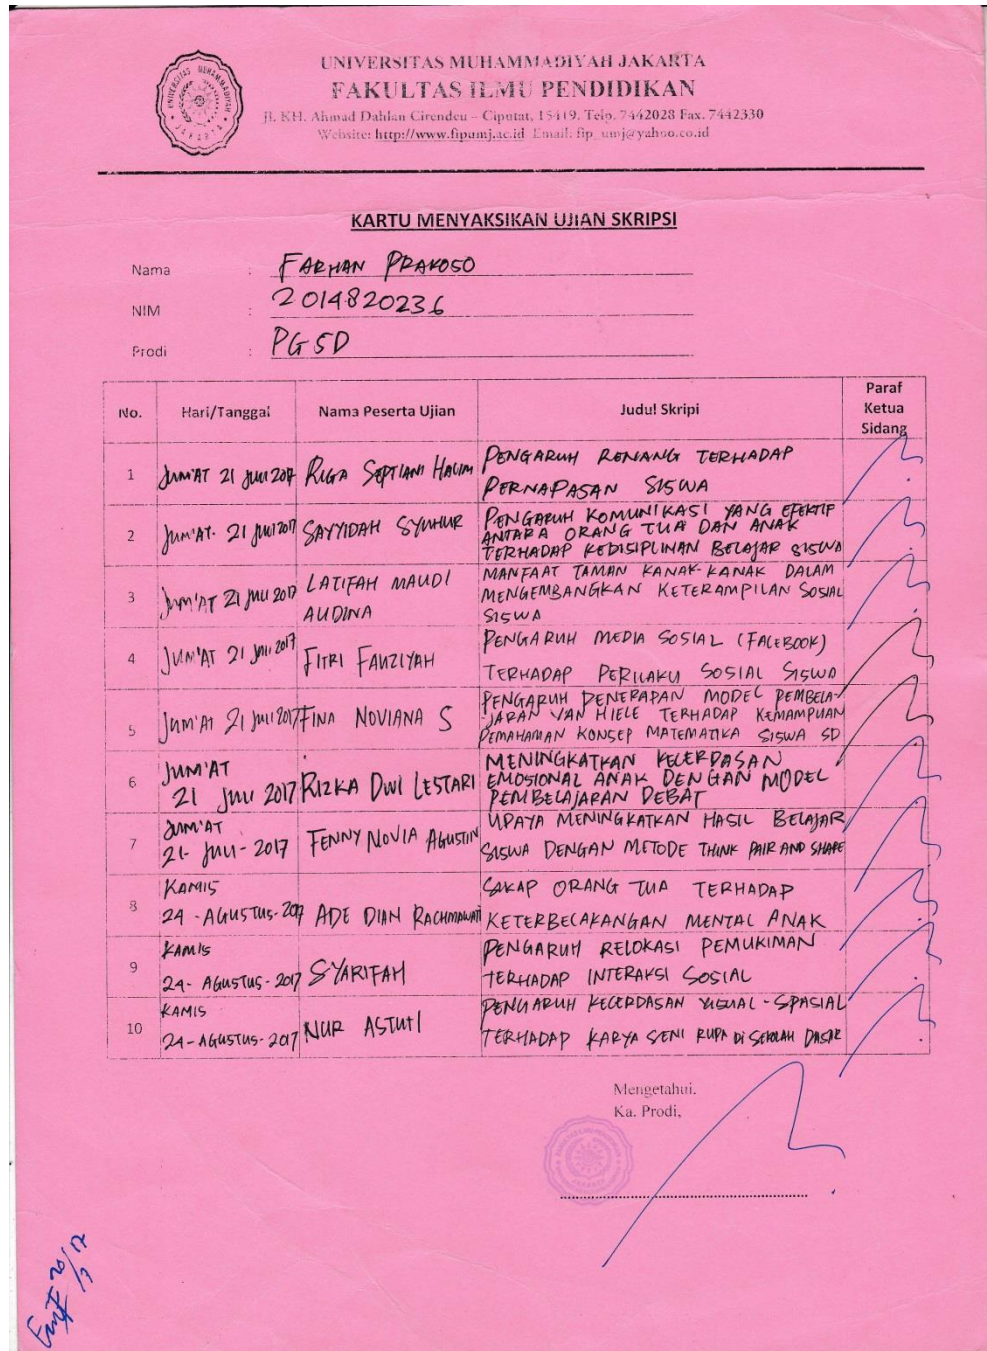 UNIVERSITAS MUHAMMADIYAH JAKARTA
FAKULTAS ILMU PENDIDIKAN
Jl. KH. Ahmad Dahlan Cirendeu – Ciputat, 15419. Telp. 7442028 Fax. 7442330
Website: http://www.fipumj.ac.id Email: fip_umj@yahoo.co.id
KARTU MENYAKSIKAN UJIAN SKRIPSI
Nama : FARHAN PRAKOSO
NIM : 2014820236
Prodi : PGSD
No. Hari/Tanggal Nama Peserta Ujian Judul Skripi Paraf Ketua Sidang
1 JUM'AT 21 JULI 2017 RIGA SEPTIANI HALIM PENGARUH RENANG TERHADAP
PERNAPASAN SISWA
2 JUM'AT. 21 JULI 2017 SAYYIDAH SYUHUR PENGARUH KOMUNIKASI YANG EFEKTIF
ANTARA ORANG TUA DAN ANAK
TERHADAP KEDISIPLINAN BELAJAR SISWA
3 JUM'AT 21 JULI 2017 LATIFAH MAUDI
AUDINA
MANFAAT TAMAN KANAK-KANAK DALAM
MENGEMBANGKAN KETERAMPILAN SOSIAL
SISWA
4 JUM'AT 21 JULI 2017 FITRI FAUZIYAH PENGARUH MEDIA SOSIAL (FACEBOOK)
TERHADAP PERILAKU SOSIAL SISWA
5 JUM'AT 21 JULI 2017 FINA NOVIANA S PENGARUH PENERAPAN MODEL PEMBELA-
JARAN VAN HIELE TERHADAP KEMAMPUAN
PEMAHAMAN KONSEP MATEMATIKA SISWA SD
6 JUM'AT
21 JULI 2017 RIZKA DWI LESTARI MENINGKATKAN KECERDASAN
EMOSIONAL ANAK DENGAN MODEL
PEMBELAJARAN DEBAT
7 JUM'AT
21- JULI- 2017 FENNY NOVIA AGUSTIN UPAYA MENINGKATKAN HASIL BELAJAR
SISWA DENGAN METODE THINK PAIR AND SHARE
8 KAMIS
24 - AGUSTUS- 2017 ADE DIAN RACHMAWATI SAKAP ORANG TUA TERHADAP
KETERBELAKANGAN MENTAL ANAK
9 KAMIS
24- AGUSTUS- 2017 SYARIFAH PENGARUH RELOKASI PEMUKIMAN
TERHADAP INTERAKSI SOSIAL
10 KAMIS
24-AGUSTUS-2017 NUR ASTUTI PENGARUH KECERDASAN VISUAL-SPASIAL
TERHADAP KARYA SENI RUPA DI SEKOLAH DASAR
Mengetahui.
Ka. Prodi,